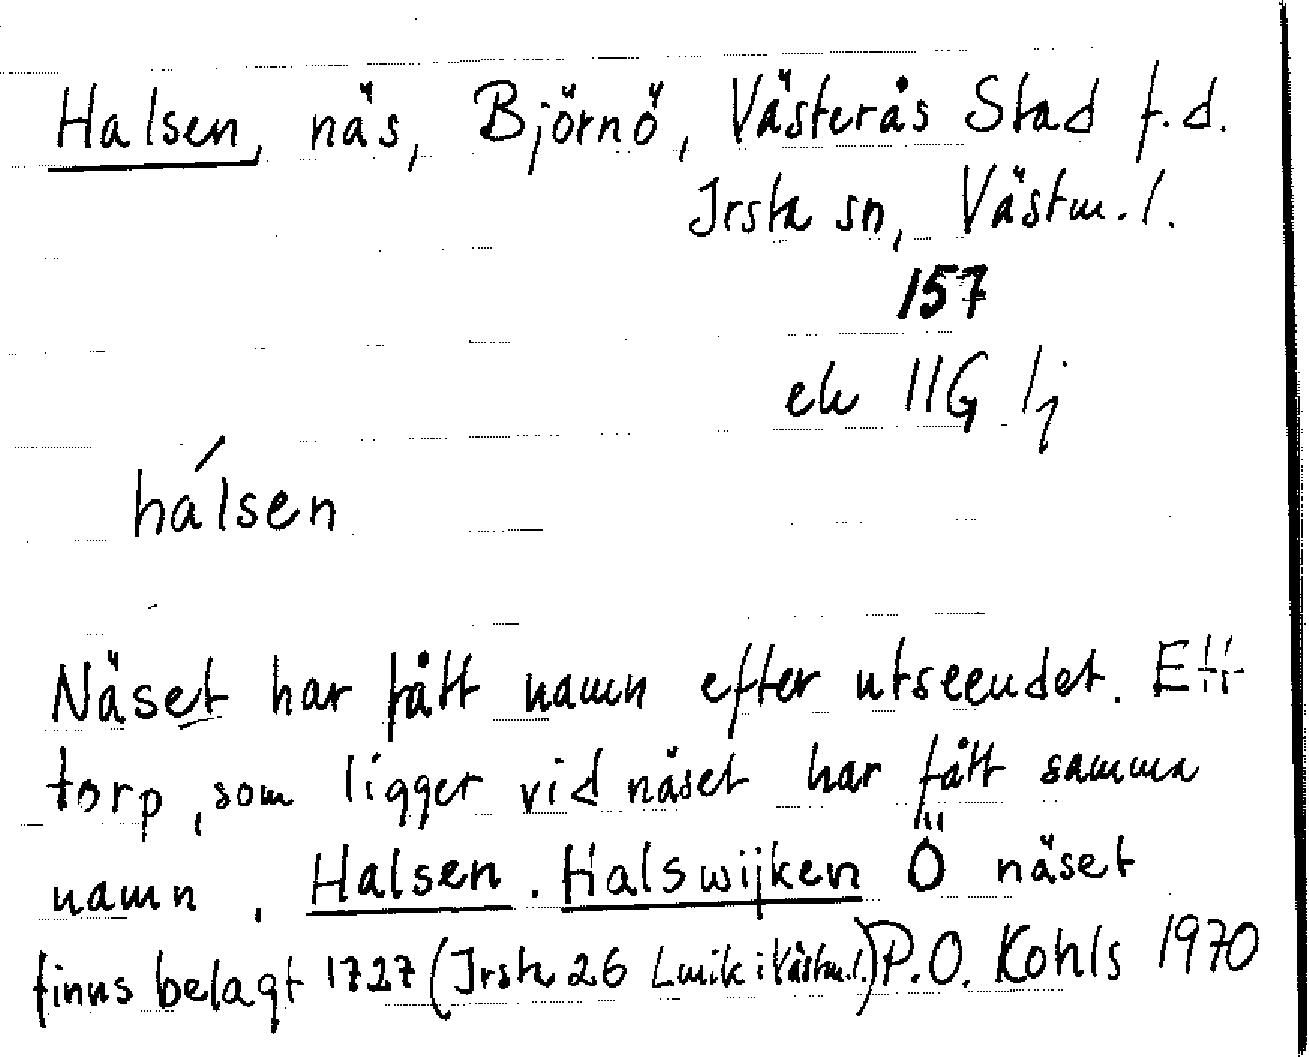 Halsen, näs, Björnö, Västerås Stad f.d.
Irsta sn, Västm. l.
157
ek 11G 1j
hálsen
Näset har fått namn efter utseendet. Ett
torp, som ligger vid näset har fått samma
namn, Halsen. Halswijken Ö näset
finns belagt 1727 (Irsta 26 Lmik i Västm.l.) P.O. Kohls 1970